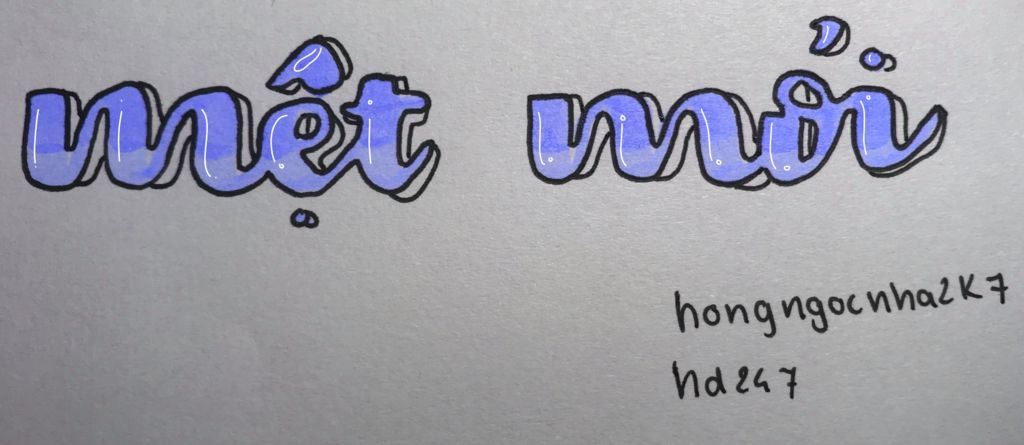 mệt mỏi
hongngocnha2K7
hd247